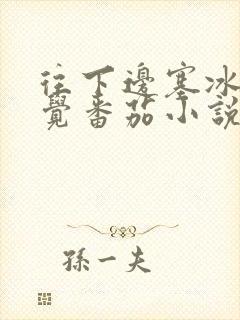 往下邊塞冰
覺番茄小說
孫一夫